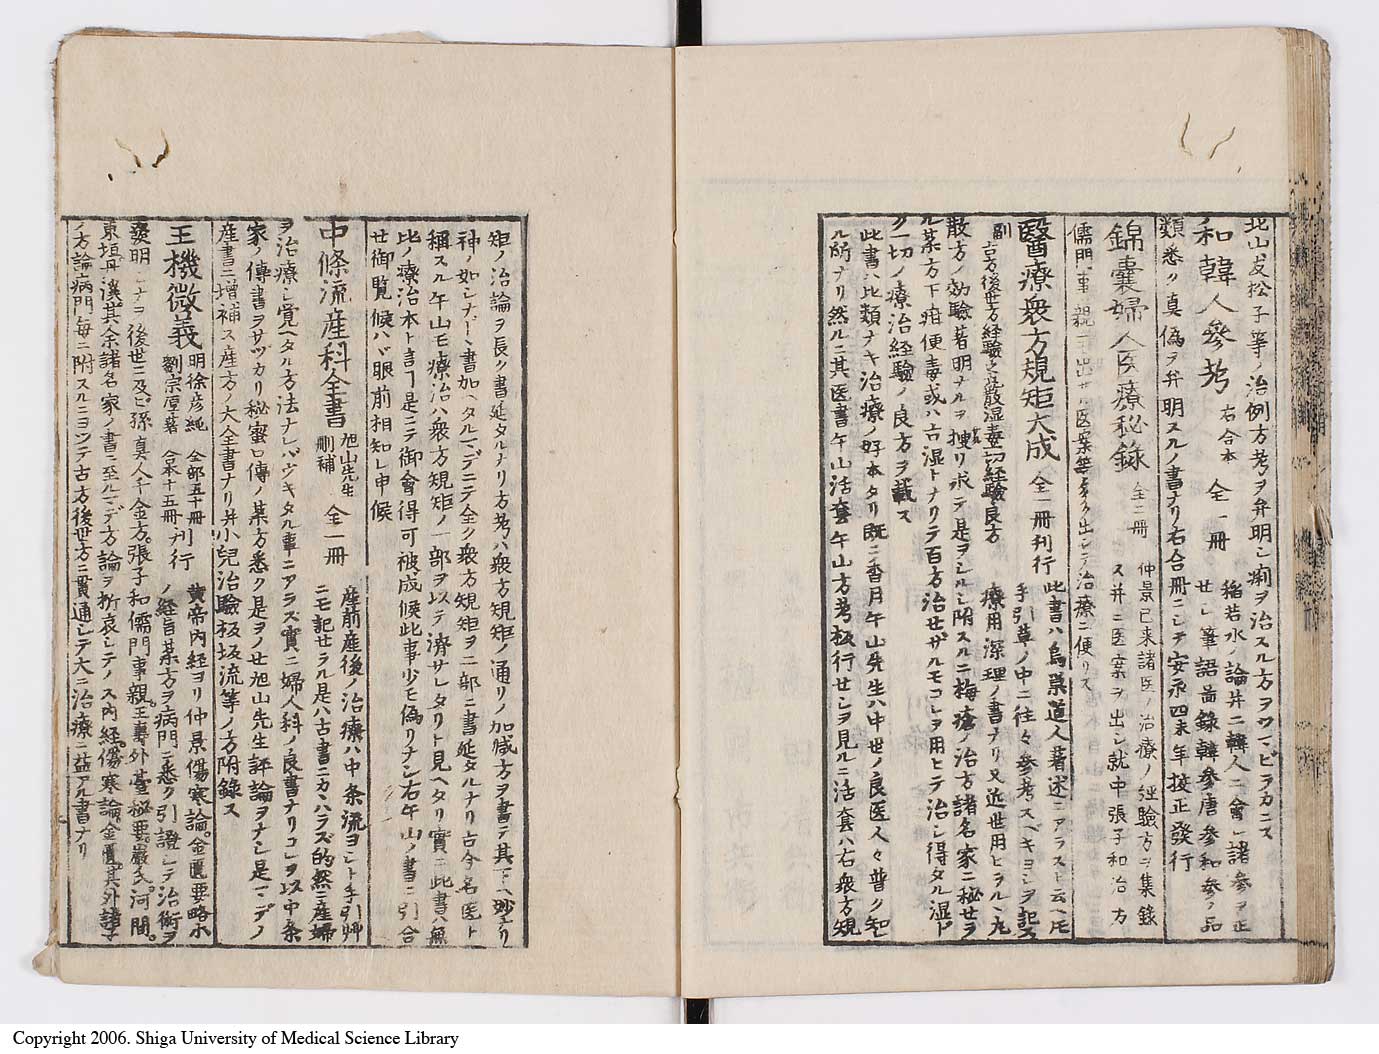 北山友松子等ノ治例方考ヲ弁明シ痢ヲ治スル方ヲツマビラカニス
和韓人參考 右合本 全一冊 稲若水ノ論并ニ韓人ニ會シ諸參ヲ正
セシ筆語畐錄韓參唐參和參ノ品
類悉ク真偽ヲ弁明スルノ書ナリ右合冊ニシテ安永四未年挍正發行
錦囊婦人医療秘録 全二冊 仲景已来諸医ノ治療ノ経験方ヲ集録
ス并ニ医案ヲ出シ就中張子和治方
儒門事親ニ出せル医案等多ク出シテ治療ニ便リス
醫療衆方規矩大成 全一冊刊行 此書ハ烏巣道人著述ニアラスト云ヘ𪜈
手引草ノ中ニ往々参考スベキヨシヲ記ス
副 古方後世方経験之散湿毒一切経験良方 療用深理ノ書ナリ又近世用ヒラルヽ丸
散方ノ効験著明ナルヲ揀リ求テ是ヲシルシ附スルニ梅瘡ノ治方諸名家ニ秘せラ
ル某方下疳便毒或ハ古湿トナリテ百方治せザルモコレヲ用ヒテ治シ得タル湿ト
ク一切ノ療治経験ノ良方ヲ載ス
此書ハ比類ナキ治療ノ好本タリ既ニ香月牛山先生ハ中世ノ良医人々普ク知
ル所ナリ然ルニ其医書牛山活套牛山方考板行せシヲ見ルニ活套ハ右衆方規
矩ノ治論ヲ長ク書延タルナリ方考ハ衆方規矩ノ通リノ加减方ヲ書テ其下ヘ妙ナリ
神ノ如シナドヽ書加ヘタルマデニテ全ク衆方規矩ヲ二部ニ書延タルナリ古今名医ト
稱スル牛山モ療治ハ衆方規矩ノ一部ヲ以テ濟サレタリト見ヘタリ實ニ此書ハ無
比ノ療治本ト言ヿ是ニテ御會得可被成候此事少モ偽リナシ右牛山ノ書ニ引合
せ御覧候ハヾ眼前相知レ申候
中條流産科全書 旭山先生刪補 全一冊 産前産後ノ治療ハ中条流ヨシト手引艸
ニモ記せラル是ハ古書ニカヽハラズ的然ニ産婦
ヲ治療シ覚ヘタル方法ナレバウキタル事ニアラズ實ニ婦人科ノ良書ナリコレヲ以中条
家ノ傳書ヲサヅカリ秘蜜口傳ノ某方悉ク是ヲノせ旭山先生評論ヲナシ是マデノ
産書ニ增補ス産方ノ大全書ナリ并小兒治驗板坂流等ノ方附錄ス
玉機微義 明徐彦純 劉宗厚著 全部五十冊 合本十五冊 刊行 黄帝内経ヨリ仲景傷寒論。金匱要略ホ
ノ経旨某方ヲ病門ニ悉ク引證シテ治術ヲ
発明シナヲ後世ニ及ビ孫真人千金方。張子和儒門事親。王燾外臺秘要。厳氏。河間。
東垣丹溪其余諸名家ノ書ニ至ルマデ方論ヲ折衷シテノス内経。傷寒論。金匱。其外諸子
ノ方論病門毎ニ附スルニヨツテ古方後世方ニ貫通シテ大ニ治療ニ益アル書ナリ
Copyright 2006. Shiga University of Medical Science Library